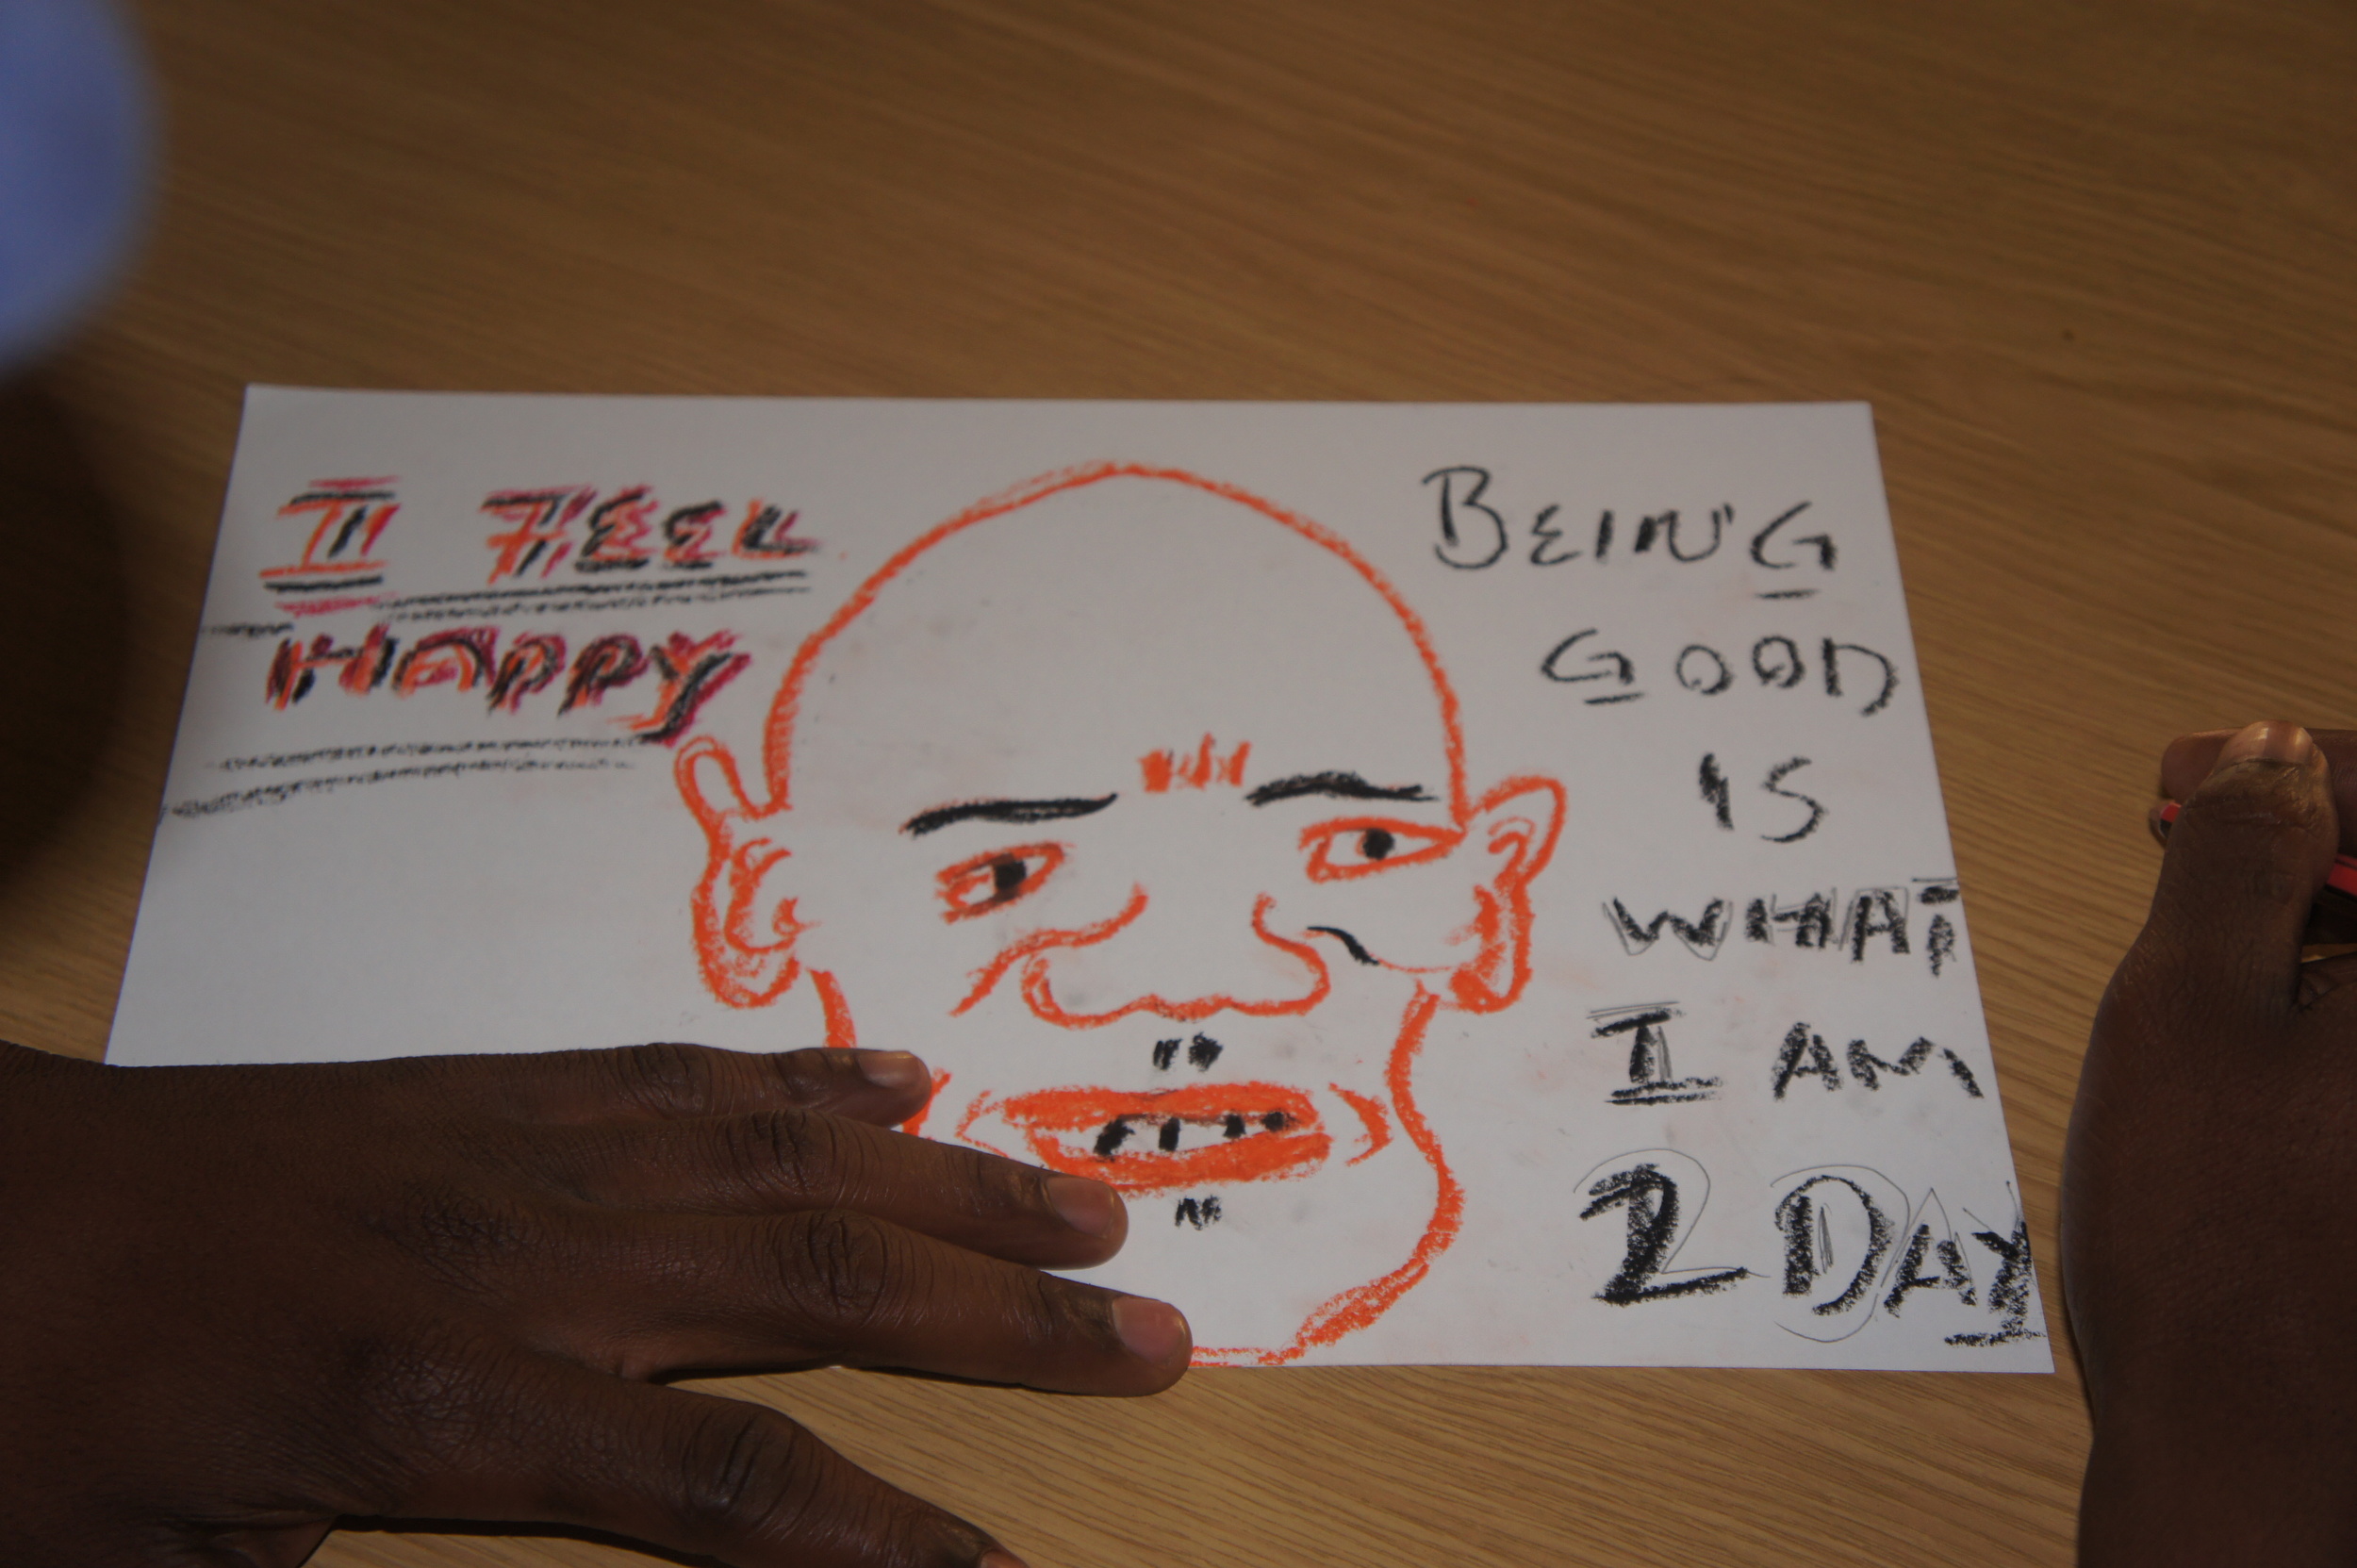 I FEEL
HAPPY
BEING
GOOD
IS
WHAT
I AM
2DAY